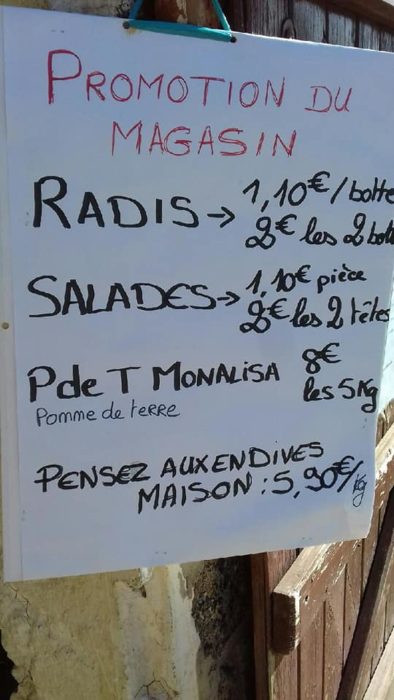 PROMOTION DU
MAGASIN
RADIS → 1,10€/botte
2€ les 2 bott
SALADES → 1,10€ pièce
2€ les 2 têtes
P de T MONALISA 8€
Pomme de terre les 5Kg
PENSEZ AUX ENDIVES
MAISON : 5,90€/kg